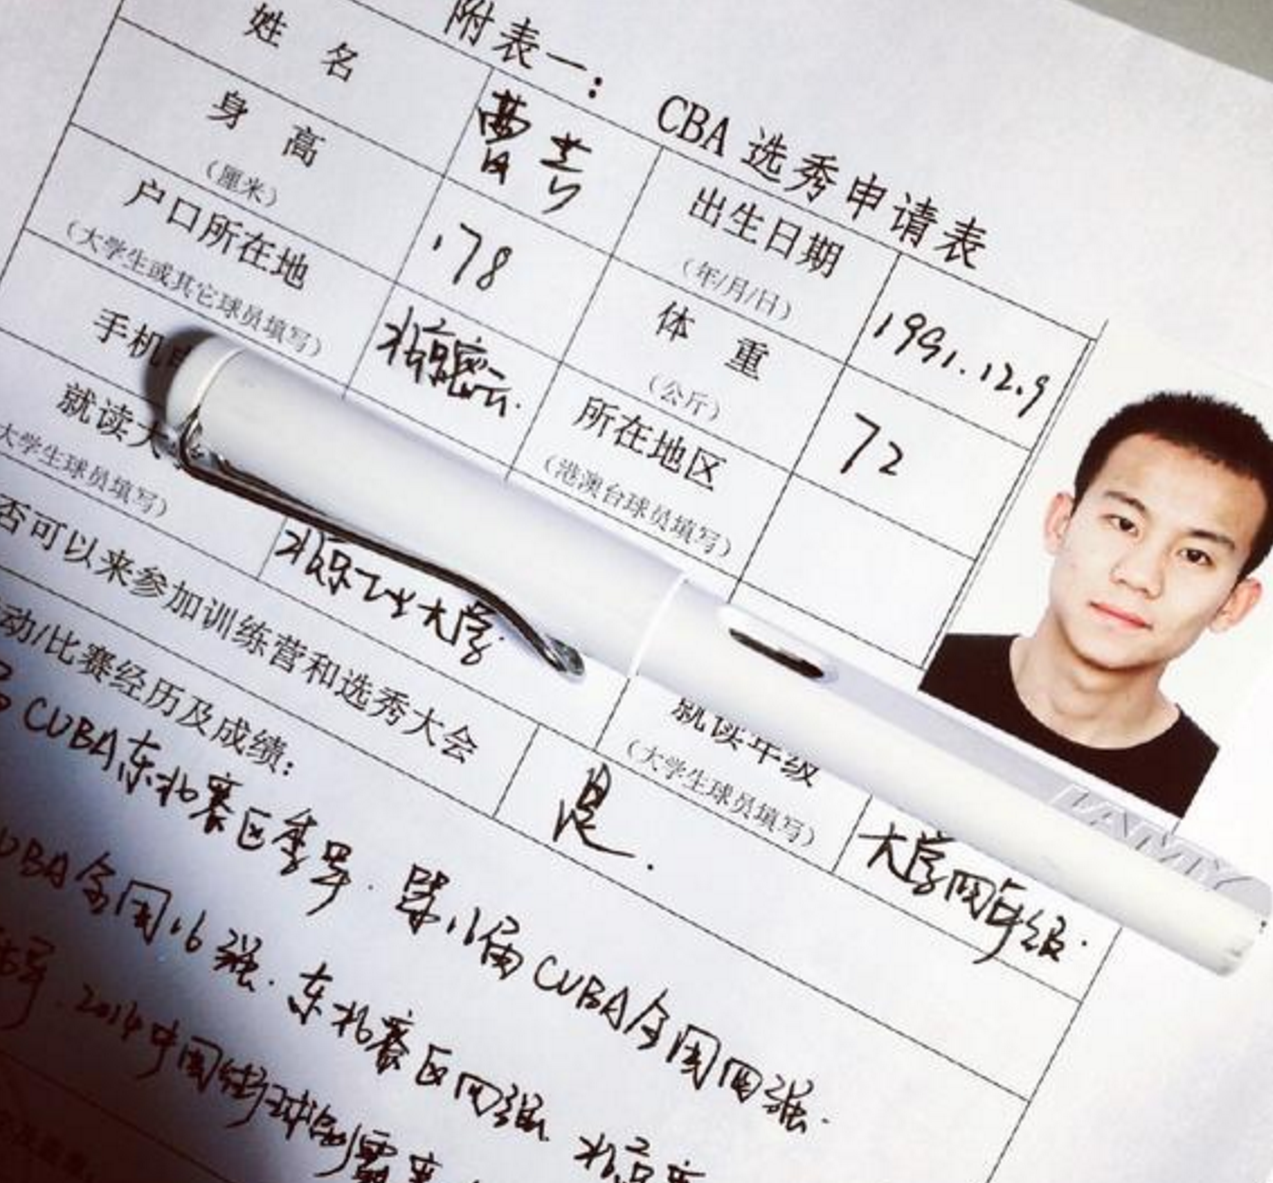 附表一：
CBA 选秀申请表
姓 名
曹芳
出生日期
（年/月/日）
1991.12.9
身 高
（厘米）
178
体 重
（公斤）
72
户口所在地
（大学生或其它球员填写）
北京密云.
所在地区
（港澳台球员填写）
手机
就读大
大学生球员填写）
北京工业大学.
就读年级
（大学生球员填写）
大学四年级.
否可以来参加训练营和选秀大会
是.
动/比赛经历及成绩：
CUBA东北赛区季军. 第16届CUBA全国四强.
UBA全国16强. 东北赛区四强. 北京市
2014中国街球
LAMY